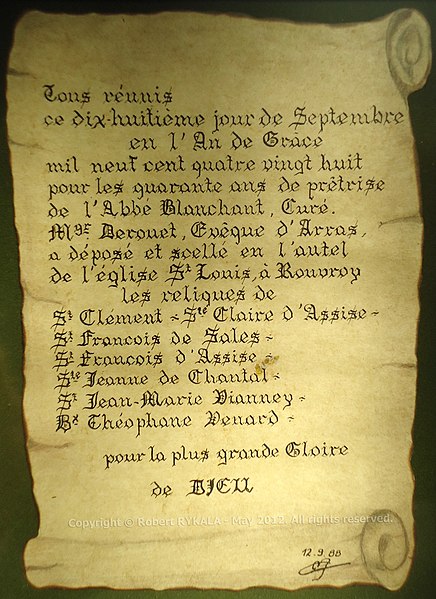 Tous réunis
ce dix-huitième jour de Septembre
en l'An de Grâce
mil neuf cent quatre vingt huit
pour les quarante ans de prêtrise
de l'Abbé Blanchant, Curé.
Mgr Derouet, Evêque d'Arras,
a déposé et scellé en l'autel
de l'église St Louis, à Rouvroy
les reliques de
St Clément - Ste Claire d'Assise -
St Francois de Sales -
St Francois d'Assise -
Ste Jeanne de Chantal -
St Jean-Marie Vianney -
Bx Théophane Venard -
pour la plus grande Gloire
de DIEU
Copyright © Robert RYKALA - May, 2012. All rights reserved.
12.9.88